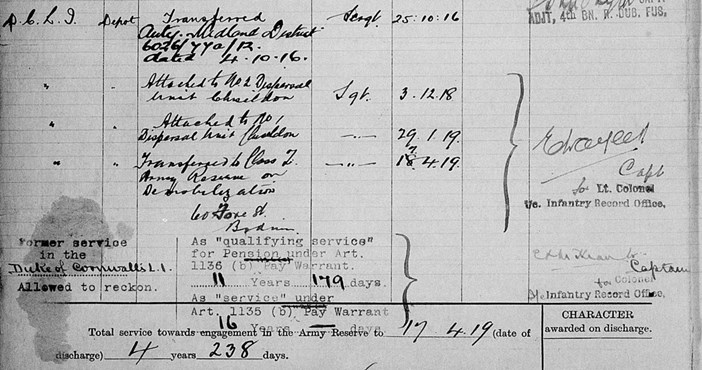 ADJT, 4TH BN. R. DUB. FUS,
D. C. L. I. Depot Transferred Sergt 25.10.16
Auty. Midland District
6026/77a/12.
dated 4.10.16.
" " Attached to No 2 Dispersal
Unit Chiseldon Sgt. 3.12.18
" " Attached to No 1
Dispersal Unit Chiseldon —"— 29.1.19.
" " Transferred to Class Z. —"— 18.4.19.
Army Reserve on
Demobilization
60 Fore St.
Bodmin
Capt
for Lt. Colonel
i/c. Infantry Record Office.
Former service
in the
Duke of Cornwall's L.I.
Allowed to reckon.
As "qualifying service"
for Pension under Art.
1136 (b) Pay Warrant.
11 Years 179 days.
As "service" under
Art. 1135 (b) Pay Warrant
16 Years — days.
Captain
for Colonel
i/c Infantry Record Office.
Total service towards engagement in the Army Reserve to 17.4.19 (date of
discharge) 4 years 238 days.
CHARACTER
awarded on discharge.